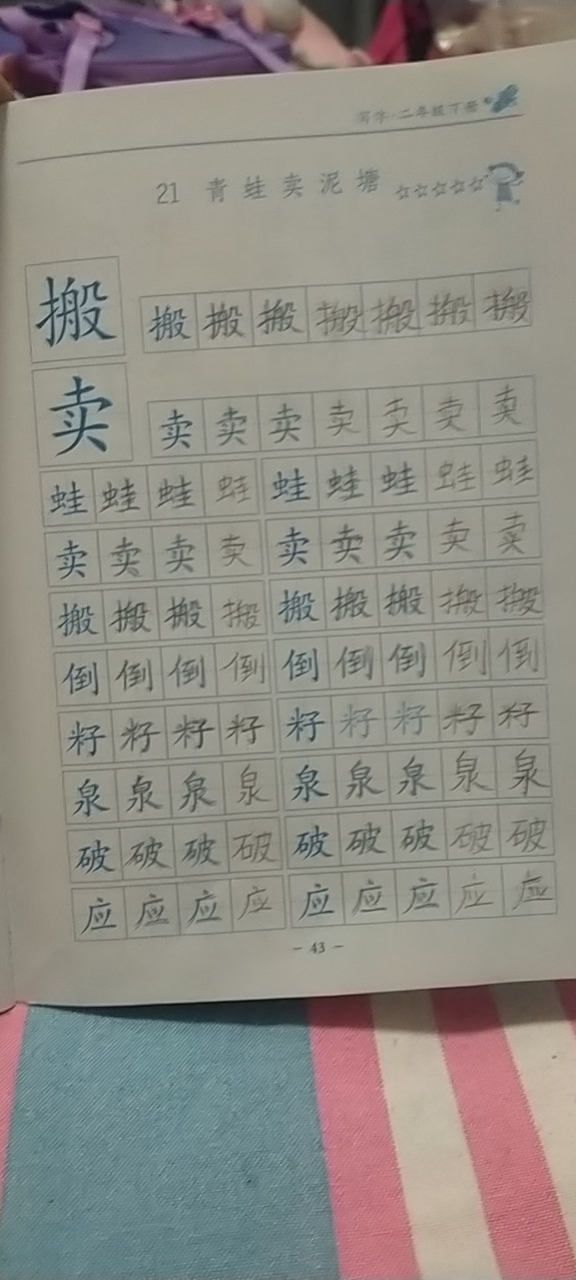 写字·二年级下册
21 青蛙卖泥塘 ☆☆☆☆☆
搬 搬 搬 搬 搬 搬 搬 搬
卖 卖 卖 卖 卖 卖 卖 卖
蛙 蛙 蛙 蛙 蛙 蛙 蛙 蛙 蛙
卖 卖 卖 卖 卖 卖 卖 卖 卖
搬 搬 搬 搬 搬 搬 搬 搬 搬
倒 倒 倒 倒 倒 倒 倒 倒 倒
籽 籽 籽 籽 籽 籽 籽 籽 籽
泉 泉 泉 泉 泉 泉 泉 泉 泉
破 破 破 破 破 破 破 破 破
应 应 应 应 应 应 应 应 应
- 43 -